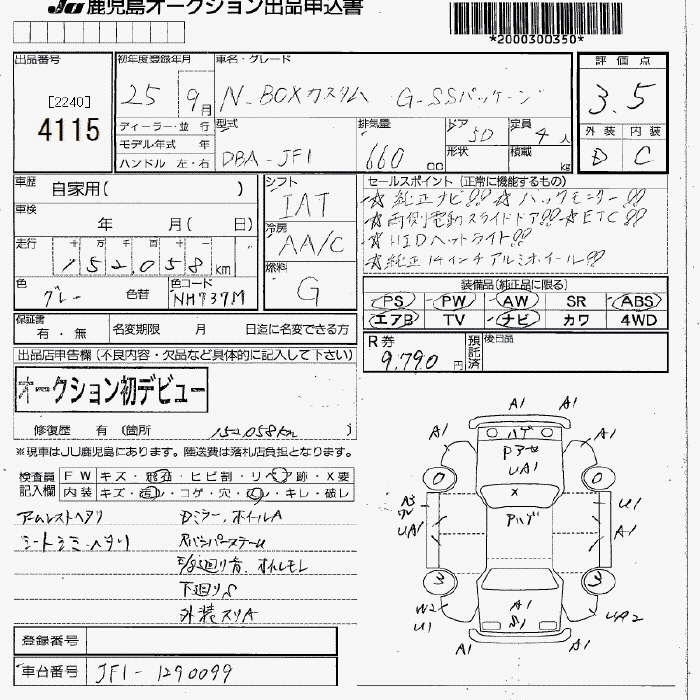 JU鹿児島オークション出品申込書
*2000300350*
出品番号
[2240]
4115
初年度登録年月
25 9月
車名・グレード
N-BOXカスタム G-SSパッケージ
評価点
3.5
外装 内装
D C
ディーラー・並行
モデル年式 年
ハンドル 左・右
型式
DBA-JF1
排気量
660 cc
ドア
5D
形状
定員
4人
積載
kg
車歴
自家用( )
車検
年 月( 日)
走行
十 万 千 百 十
152,058 km
色
グレー
色替
色コード
NH737M
シフト
IAT
冷房
AA/C
燃料
G
セールスポイント(正常に機能するもの)
☆純正ナビ!!☆バックモニター!!
☆両側電動スライドドア!!☆ETC!!
☆HIDヘッドライト!!
☆純正14インチアルミホイール!!
装備品[純正品に限る]
PS PW AW SR ABS
エアB TV ナビ カワ 4WD
保証書
有・無
名変期限 月 日迄に名変できる方
R券
9,790円
預託済
後日品
出品店申告欄(不良内容・欠品など具体的に記入して下さい)
オークション初デビュー
修復歴 有(箇所 152,058km )
※現車はJU鹿児島にあります。陸送費は落札店負担となります。
検査員記入欄
FW キズ・飛石・ヒビ割・リペア跡・X要
内装 キズ・汚レ・コゲ・穴・ ・キレ・破レ
アームレストヘタリ
シートシミ・ヘタリ
Dミラー、ホイルA
RバンパーステーU
下廻りS
外装スリA
登録番号
車台番号
JF1-1290099
A1 A1
A1 A1
ハゲ
Pアセ
UA1
X
Pハゲ
0 0
A3
UA1
U1
A1
3 3
W2
U1
A1
S1
UA2
A1 A1